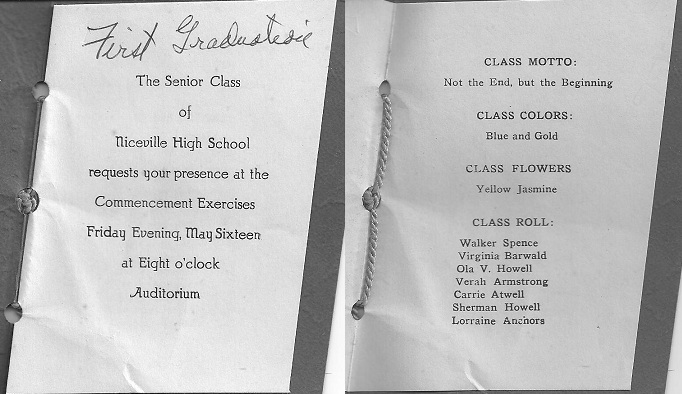 First Graduation
The Senior Class
of
Niceville High School
requests your presence at the
Commencement Exercises
Friday Evening, May Sixteen
at Eight o'clock
Auditorium
CLASS MOTTO:
Not the End, but the Beginning
CLASS COLORS:
Blue and Gold
CLASS FLOWERS
Yellow Jasmine
CLASS ROLL:
Walker Spence
Virginia Barwald
Ola V. Howell
Verah Armstrong
Carrie Atwell
Sherman Howell
Lorraine Anchors